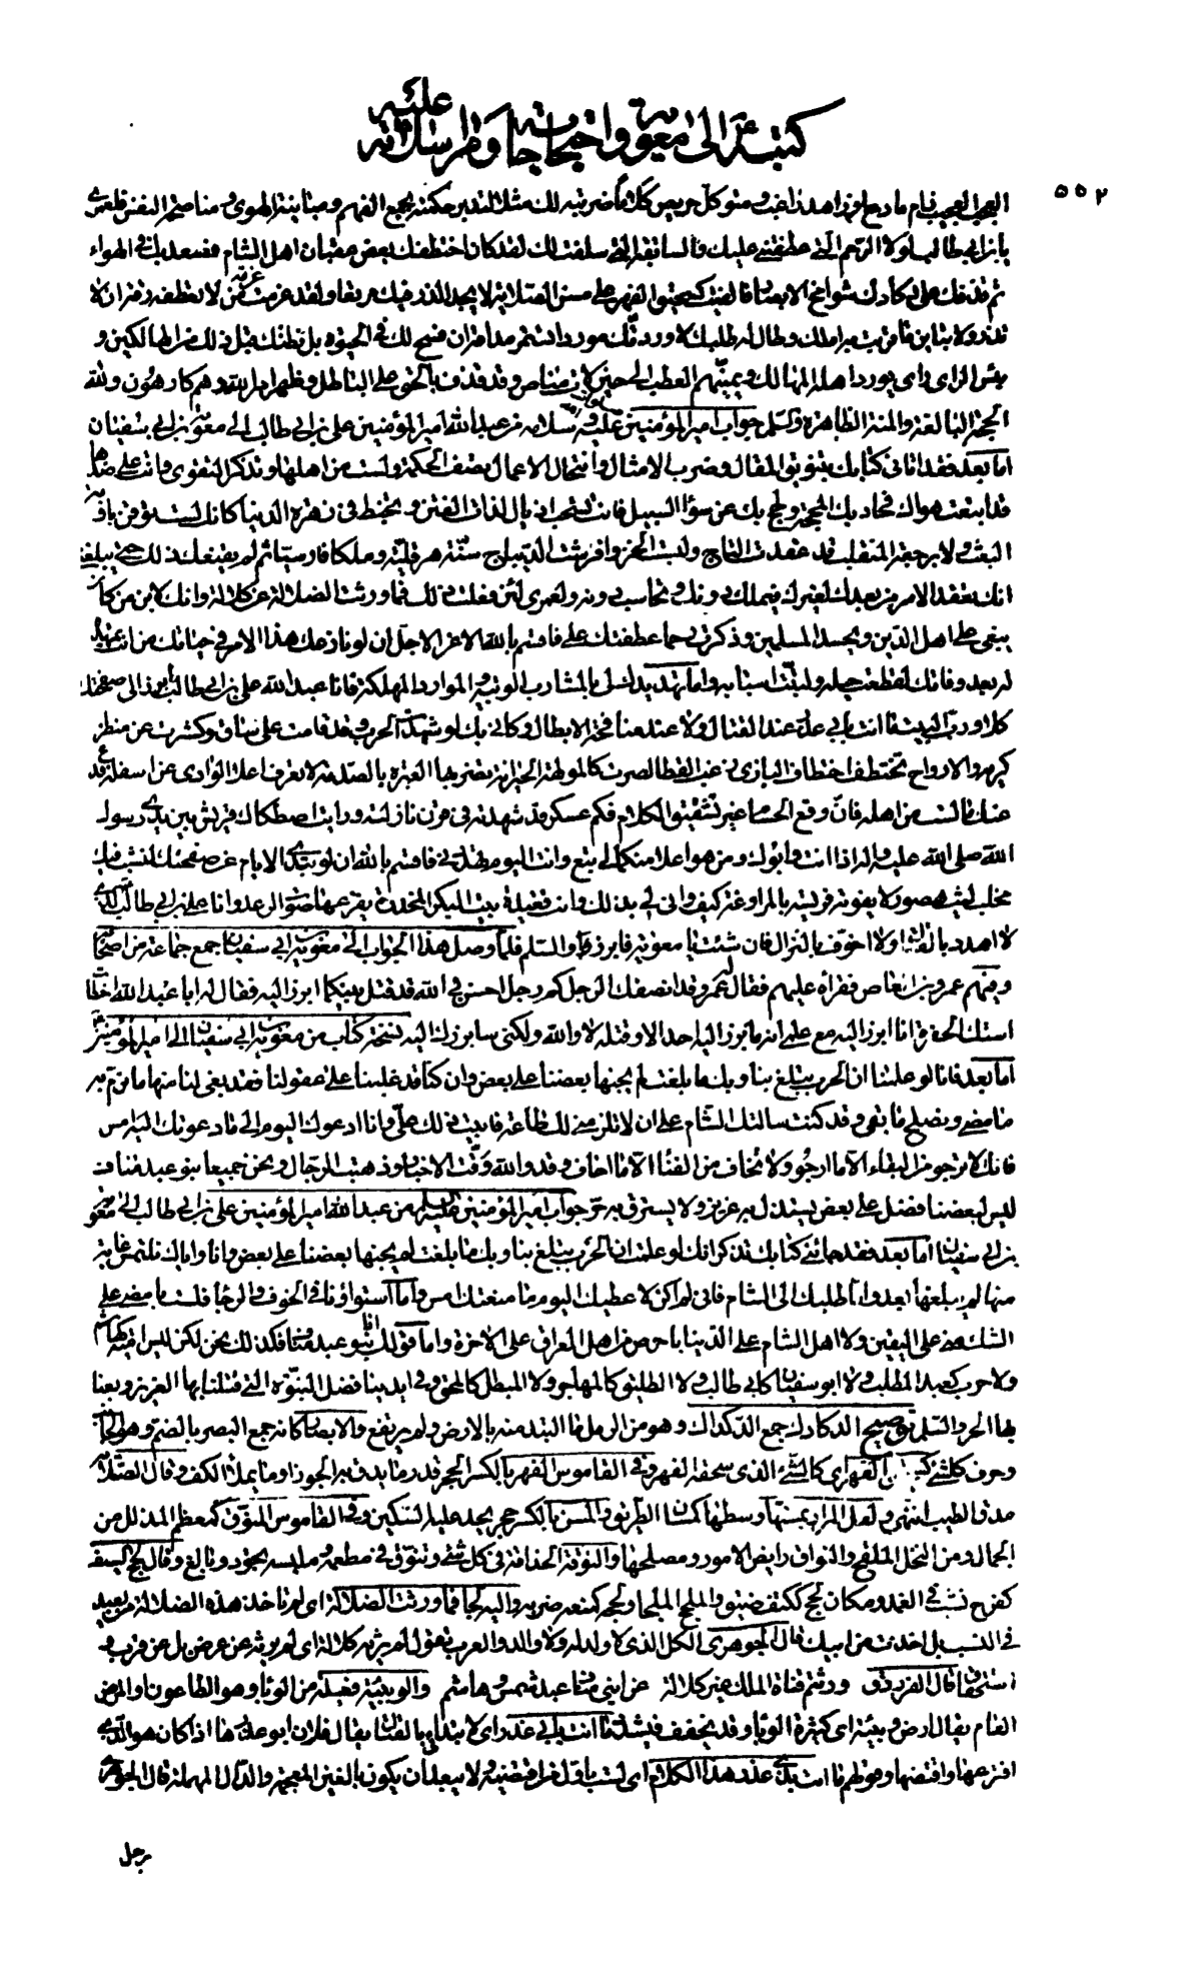 كتبه ع الى معوية واحتجاجاته ومراسلاته عليه
٥٥٢
العجب العجيب فيا من ما دعا وزاهدا غب ومتوكل حريص كلاما ضربته لك مثلا لتدبر حكمته بجمع الفهم ومباينة الهوى ومناصحة النفس فلعمرى
يابن ابى طالب لولا الرحم التى عطفتنى عليك والسابقة التى سلفت لك لقد كان اختطفك بعض عقبان اهل الشام فصعد بك فى الهواء
ثم قذفك على دكادك شوامخ الابصار فالفيت كسحيق الفهر على مسن الصلابة لا يجد الذر فيك مرتعا ولقد عزمت عزمة من لا تعطفه رقة ان لا
تذر ولا تباين ما قربت به املك وطال له طلبك لاوردنك موردا تستمر مدا فزان فسح لك فى الحيوة بل نظنك قبل ذلك من الهالكين و
بئس الراى راى يورد اهله المهالك ويمنيهم العطب الى حين لات مناص وقد قذف بالحق على الباطل وظهر امر الله وهم كارهون ولله
الحجة البالغة والمنة الظاهرة والسلم جواب امير المؤمنين عليه سلام من عبد الله امير المؤمنين على بن ابى طالب الى معوية بن ابى سفيان
اما بعد فقد اتانى كتابك بتنويق المقال وضرب الامثال وانتحال الاعمال تصف الحكمة ولست من اهلها وتذكر التقوى وانت على ضدها
قد اتبعت هواك فحاد بك المحجة ولحج بك عن سواء السبيل فانت تسحب اذيال لذات الفتن وتخبط فى زهرة الدنيا كانك لست توقن باوبة
البعث ولا برجعة المنقلب قد عقدت التاج ولبست الخز وافترشت الديباج سنة هرقلية وملكا فارسيا ثم لم يقنعك ذلك حتى يبلغنى
انك تعقد الامر من بعدك لغيرك فيملك دونك وتحاسب دونه ولعمرى لئن فعلت ذلك فما ورثت الضلالة عن كلالة وانك لابن من كان
يبغى على اهل الدين ويحسد المسلمين وذكرت رحما عطفتك على فاقسم بالله الاعز الاجل ان لو نازعك هذا الامر فى حياتك من انت تمهد
له بعد وفاتك لقطعت حبله وابنت اسبابه واما تهديدك لى بالمشارب الوبيئة والموارد المهلكة فانا عبد الله على بن ابى طالب ابرز الى صفحتك
كلا ورب البيت ما انت بابى عذر عند القتال ولا عند لقاء الابطال وكانى بك لو شهدت الحرب وقد قامت على ساق وكشرت عن منظر
كريه والارواح تختطف اختطاف البازى زغب القطا لصرت كالمولهة الحيرانة تضربها العبرة بالصدمة لا تعرف اعلا الوادى عن اسفله فدع
عنك ما لست من اهله فان وقع الحسام غير تشقيق الكلام فكم عسكر قد شهدته وقرن نازلته ورايت اصطكاك قريش بين يدى رسول
الله صلى الله عليه واله اذ انت وابوك ومن هو اعلا منكما لى تبع وانت اليوم تهددنى فاقسم بالله ان لو تبدى الايام عن صفحتك لنشب فيك
مخلب ليث هصور لا يفوته فريسة بالمراوغة كيف وانى لك بذلك وانت قعيدة بنت البكر المخدرة يفزعها صوت الرعد وانا على بن ابى طالب الذى
لا اهدد بالقتال ولا اخوف بالنزال فان شئت يا معوية فابرز والسلم فلما وصل هذا الجواب الى معوية بن ابى سفيان جمع جماعة من اصحابه
وفيهم عمرو بن العاص فقرأه عليهم فقال له عمرو قد انصفك الرجل كم رجل احسن فى الله قد قتل بينكما ابرز اليه فقال له ابا عبد الله اخطأت
استك الحفرة انا ابرز اليه مع علمى انه ما برز اليه احد الا وقتله لا والله ولكنى سابرزك اليه نسخة كتاب من معوية بن ابى سفيان الى امير المؤمنين
اما بعد فانا لو علمنا ان الحرب تبلغ بنا وبك ما بلغت لم يجنها بعضنا على بعض وان كنا قد غلبنا على عقولنا فقد بقى لنا منها ما نرم به
ما مضى ونصلح ما بقى وقد كنت سالتك الشام على ان لا تلزمنى لك طاعة فابيت ذلك على وانا ادعوك اليوم الى ما دعوتك اليه امس
فانك لا ترجو من البقاء الا ما ارجو ولا تخاف من الفناء الا ما اخاف وقد والله رقت الاجناد وذهبت الرجال ونحن جميعا بنو عبد مناف
ليس لبعضنا فضل على بعض يستذل به عزيز ولا يسترق به حر جواب امير المؤمنين عليه السلم من عبد الله امير المؤمنين على بن ابى طالب الى معوية
بن ابى سفيان اما بعد فقد جائنى كتابك تذكر انك لو علمت ان الحرب تبلغ بنا وبك ما بلغت لم يجنها بعضنا على بعض وانا واياك نلتمس غاية
منها لم نبلغها بعد واما طلبك الى الشام فانى لم اكن لاعطيك اليوم ما منعتك امس واما استواؤنا فى الخوف والرجا فلست بامضى على
الشك منى على اليقين ولا اهل الشام على الدنيا باحرص من اهل العراق على الاخرة واما قولك انا بنو عبد مناف فكذلك نحن لكن ليس امية كهاشم
ولا حرب كعبد المطلب ولا ابو سفيان كابى طالب ولا الطليق كالمهاجر ولا المبطل كالمحق وفى ايدينا فضل النبوة التى قتلنا بها العزيز وبعنا
بها الحر والسلم توضيح الدكادك جمع الدكداك وهو من الرمل ما التبد منه بالارض ولم يرتفع والابصار كانه جمع البصر بالضم وهو الجانب
وحرف كل شئ الفهر اى كالشئ الذى سحقه الفهر وفى القاموس الفهر بالكسر الحجر قدر ما يدق به الجوز او ما يملأ الكف وقال الصلاية
مدق الطيب انتهى ولعل المراد بمسنها وسطها كمسان الطريق والمسن بالكسر حجر يحد عليه السكين وفى القاموس المنوق كمعظم المذلل من
الجمال ومن النخل الملقح والنواق رايض الامور ومصلحها والنوقة الحذاقة فى كل شئ وتنوق فى مطعمه وملبسه تجود وبالغ وقال لحج السيف
كفرح نشب فى الغمد ومكان لحج ككتف ضيق والملحج الملجأ ولحجه كمنعه ضربه واليه لجأ فما ورثت الضلالة اى لم تاخذ هذه الضلالة من بعيد
فى النسب بل اخذت من ابيك قال الجوهرى الكل الذى لا ولد له ولا والد والعرب تقول لم يرثه كلالة اى لم يرثه عن عرض بل عن قرب و
استحقاق قال الفرزدق ورثتم قناة الملك غير كلالة عن ابنى مناف عبد شمس وهاشم والوبيئة فعيلة من الوباء وهو الطاعون والمرض
العام يقال ارض وبيئة اى كثيرة الوباء وقد يخفف فيشدد ما انت بابى عذر اى لا بتدأ بالقتال يقال فلان ابو عذرها اذا كان هو الذى
افترعها وافتضها وقولهم ما انت بذى عذر هذا الكلام اى لست باول من اقتضبه ولا يبعد ان يكون بالغين المعجمة والدال المهملة قال الجوهرى
رجل